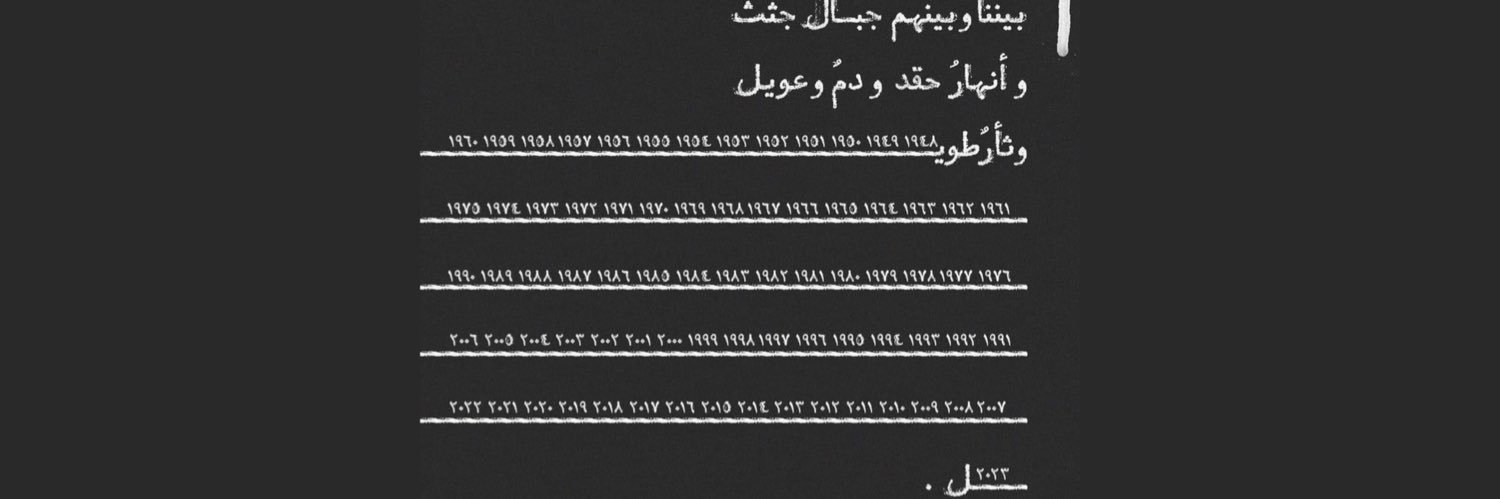 بيننا وبينهم جبال جثث
و أنهارُ حقد و دمُ وعويل
وثأرُ طويـ١٩٤٨ ١٩٤٩ ١٩٥٠ ١٩٥١ ١٩٥٢ ١٩٥٣ ١٩٥٤ ١٩٥٥ ١٩٥٦ ١٩٥٧ ١٩٥٨ ١٩٥٩ ١٩٦٠
١٩٦١ ١٩٦٢ ١٩٦٣ ١٩٦٤ ١٩٦٥ ١٩٦٦ ١٩٦٧ ١٩٦٨ ١٩٦٩ ١٩٧٠ ١٩٧١ ١٩٧٢ ١٩٧٣ ١٩٧٤ ١٩٧٥
١٩٧٦ ١٩٧٧ ١٩٧٨ ١٩٧٩ ١٩٨٠ ١٩٨١ ١٩٨٢ ١٩٨٣ ١٩٨٤ ١٩٨٥ ١٩٨٦ ١٩٨٧ ١٩٨٨ ١٩٨٩ ١٩٩٠
١٩٩١ ١٩٩٢ ١٩٩٣ ١٩٩٤ ١٩٩٥ ١٩٩٦ ١٩٩٧ ١٩٩٨ ١٩٩٩ ٢٠٠٠ ٢٠٠١ ٢٠٠٢ ٢٠٠٣ ٢٠٠٤ ٢٠٠٥ ٢٠٠٦
٢٠٠٧ ٢٠٠٨ ٢٠٠٩ ٢٠١٠ ٢٠١١ ٢٠١٢ ٢٠١٣ ٢٠١٤ ٢٠١٥ ٢٠١٦ ٢٠١٧ ٢٠١٨ ٢٠١٩ ٢٠٢٠ ٢٠٢١ ٢٠٢٢
٢٠٢٣ ـل .